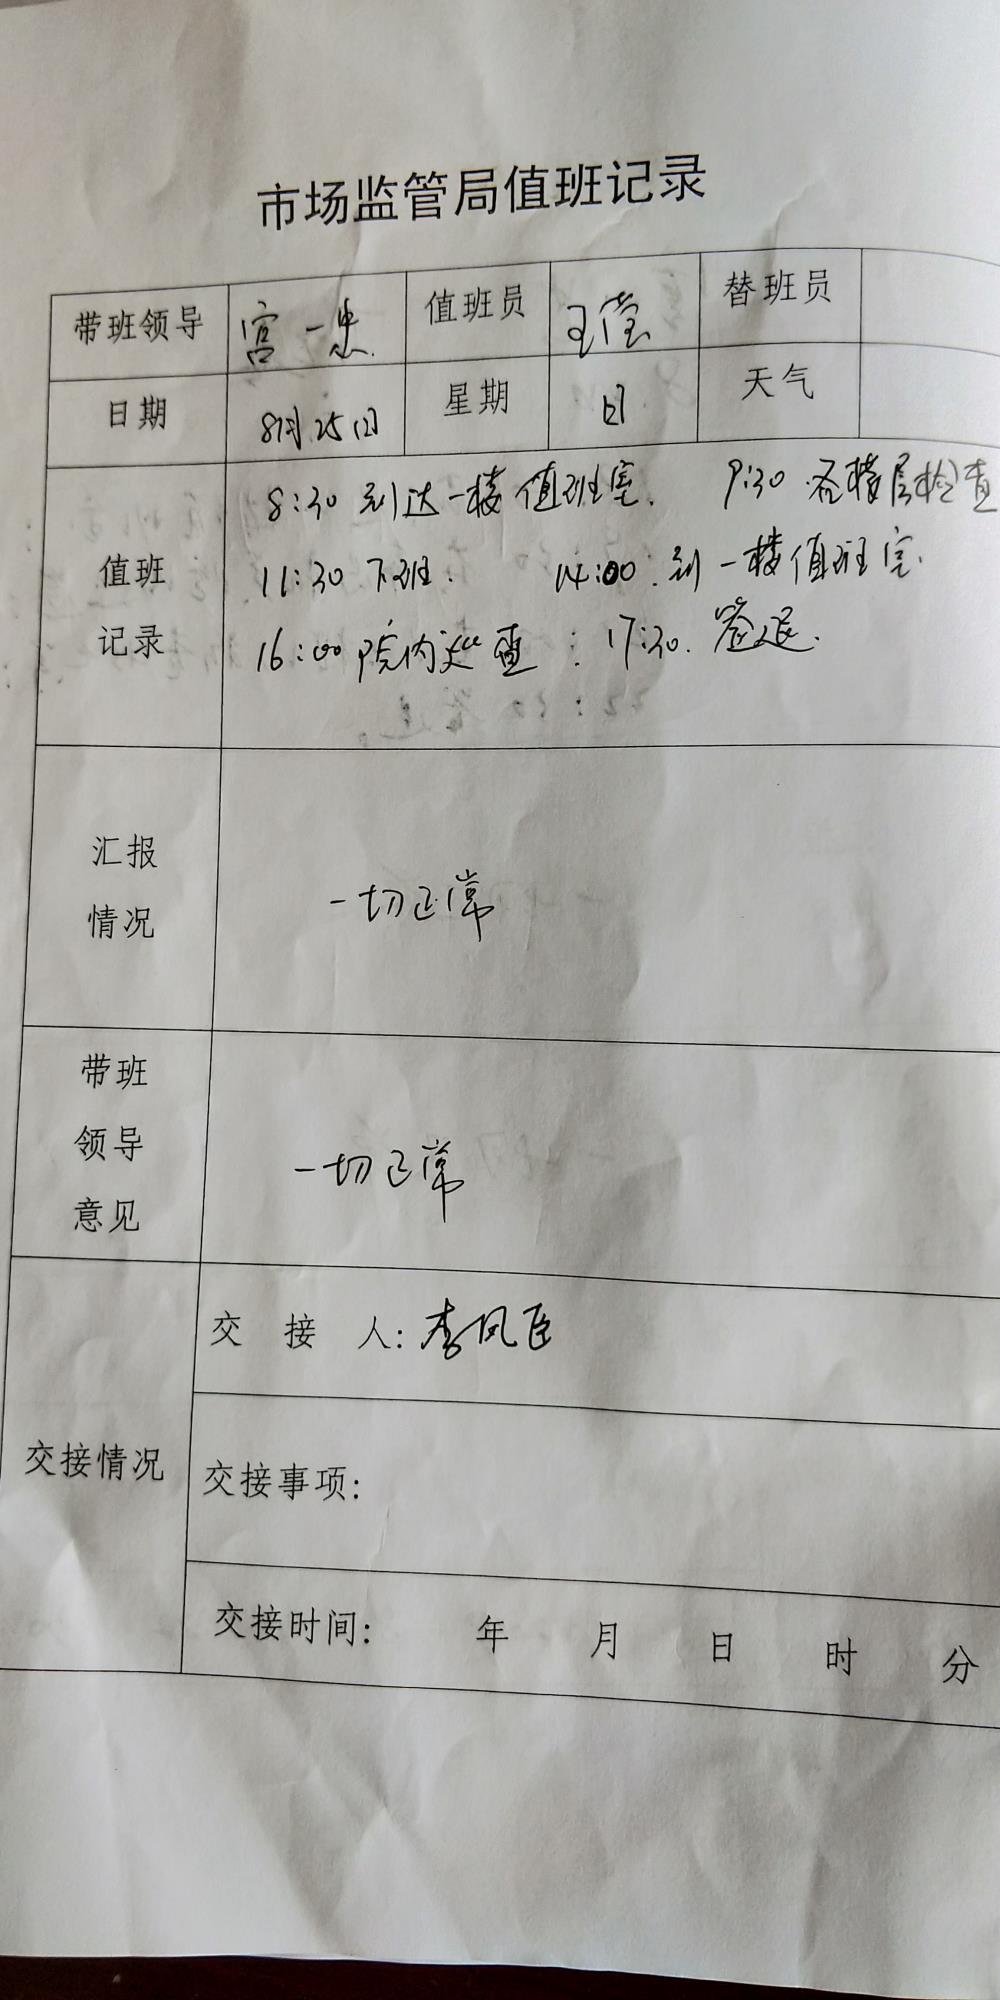 市场监管局值班记录
带班领导 宫一忠 值班员 王莹 替班员
日期 8月25日 星期 日 天气
值班记录
8:30 到达一楼值班室. 9:30 各楼层检查
11:30 下班. 14:00 到一楼值班室.
16:00 院内巡查 : 17:30. 签退.
汇报情况
一切正常
带班领导意见
一切正常
交接情况
交接人: 李凤臣
交接事项:
交接时间: 年 月 日 时 分